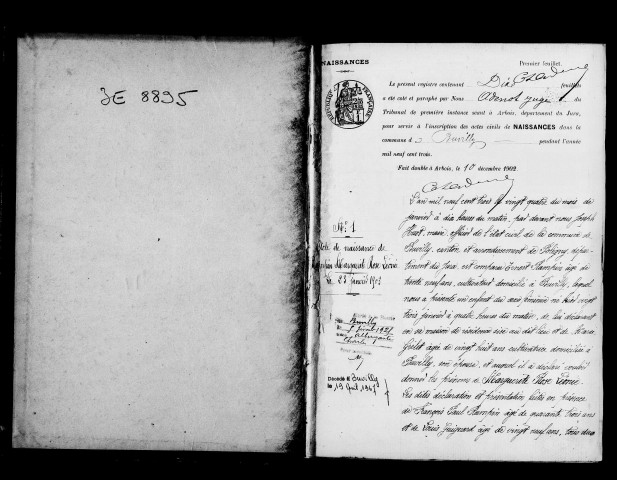 3E 8895
NAISSANCES
Premier feuillet.
Le présent registre contenant Dix feuillets
a été coté et paraphé par Nous Adenot juge du
Tribunal de première instance séant à Arbois, département du Jura,
pour servir à l'inscription des actes civils de NAISSANCES dans la
commune d Buvilly pendant l'année
mil neuf cent trois.
Fait double à Arbois, le 10 décembre 1902
RÉPUBLIQUE FRANÇAISE
N° 1
Acte de naissance de
Marguerite Rose Léonie
Le 23 janvier 1903
Buvilly
Décédée à Buvilly
le 19
L'an mil neuf cent trois le vingt quatre du mois de
janvier à dix heures du matin, par devant nous Joseph
maire, officier de l'état civil de la commune de
Buvilly, canton et arrondissement de Poligny, dépar-
tement du Jura, est comparu Ernest âgé de
trente neuf ans, cultivateur domicilié à Buvilly, lequel
nous a présenté un enfant du sexe féminin né hier vingt
trois janvier à quatre heures du matin, de lui déclarant
en sa maison de résidence sise au dit lieu et de
âgée de vingt huit ans cultivatrice domiciliée à
Buvilly, son épouse, et auquel il a déclaré vouloir
donner les prénoms de Marguerite Rose Léonie.
Les dites déclaration et présentation faites en présence
de François Paul âgé de quarante trois ans
et de Louis âgé de vingt neuf ans, tous deux